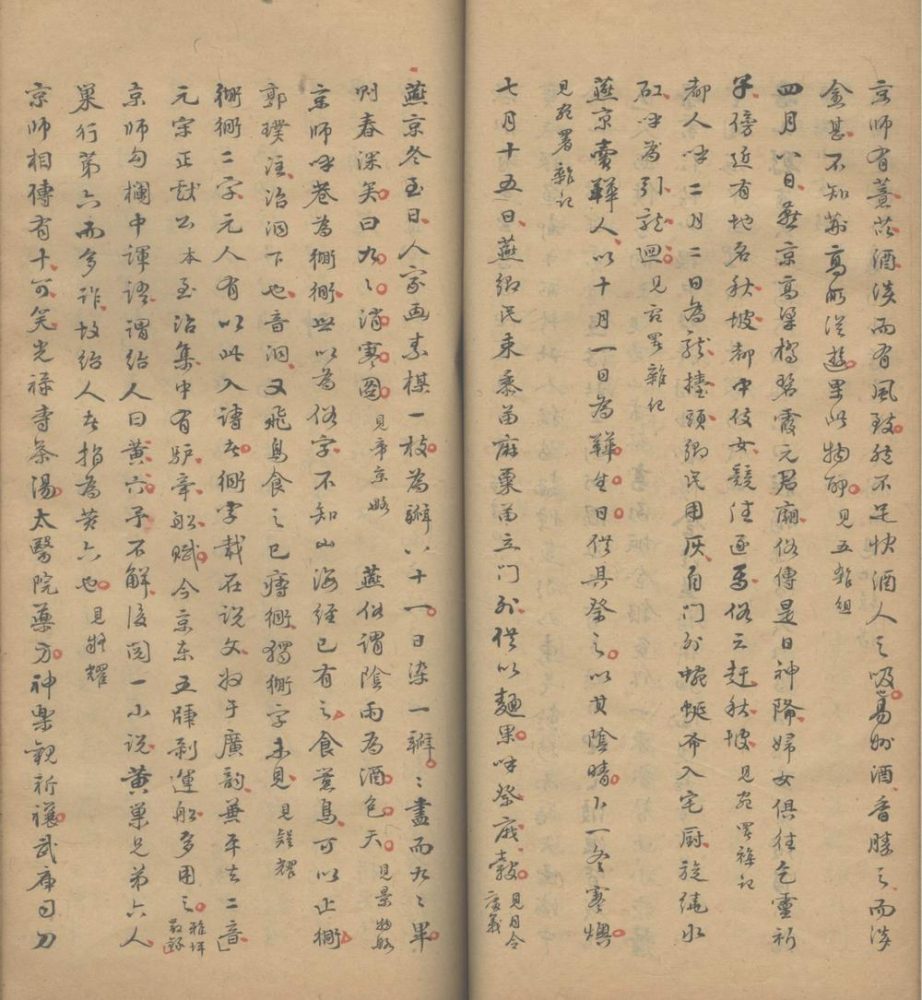 京師有薏苡酒淡而有風致然不足快酒人之吸易州酒香勝之而淡
金甚不知荊高所從遊果此物耶見五雜組
四月八日燕京高梁橋碧霞元君廟俗傳是日神降婦女俱往乞靈祈
子傍近有地名秋坡都中伎女競往逐焉俗云趕秋坡見宛署雜記
都人呼二月二日為龍擡頭鄉民用灰自門外蜿蜒布入宅廚旋繞水
缸呼為引龍迴見宛署雜記
燕京賣鞾人以十月一日為鞾生日供具祭之以其陰晴卜一冬寒燠
見宛署雜記
七月十五日燕鄉民來黍苗麻粟苗立門外供以麵果呼祭麻穀見月令廣義
燕京冬至日人家画素楳一枝為瓣八十一日染一瓣瓣盡而九九畢
則春深矣曰九九消寒圖見帝京略 燕俗謂陰雨為酒色天見景物略
京師呼巷為衚衕世以為俗字不知山海經已有之食嚻鳥可以止衕
郭璞注治洞下也音洞又飛鳥食之已痔衕獨衚字未見見觚耀
衚衕二字元人有以此入詩者衕字載在説文收于廣韵兼平去二音
元宋正獻公本至治集中有驴牽船賦今京东五牐剥運船多用之雅坪散録
京師勾欄中諢語謂紿人曰黄六予不解後閲一小说黄巢兄弟六人
巢行第六而多詐故紿人者指為黄六也見耀
京師相傳有十可笑光禄寺茶湯太醫院藥方神樂觀祈禳武庫司刀